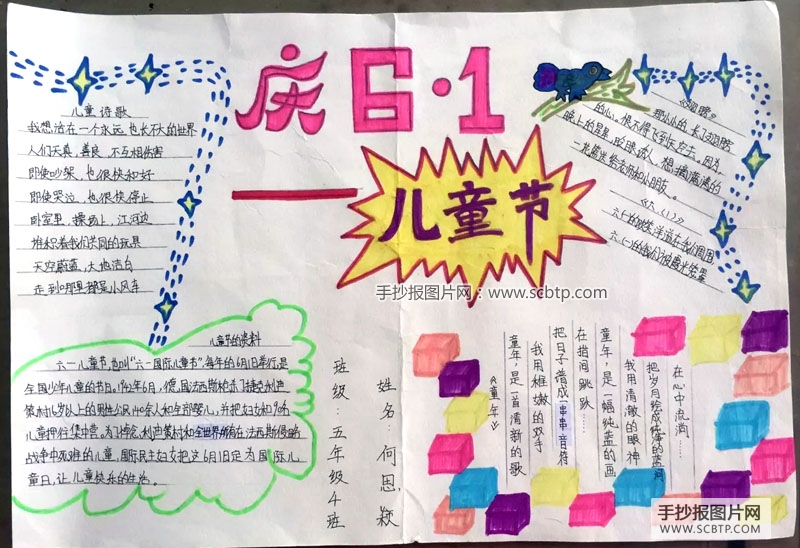 庆6·1
儿童节
手抄报图片网：www.scbtp.com
儿童诗歌
我想活在一个永远也长不大的世界
人们天真,善良,不互相伤害
即使吵架,也很快和好
即使哭泣,也很快停止
卧室里,操场上,江河边
堆积着我们共同的玩具
天空蔚蓝,大地洁白
走到哪里都是小风车
《翅膀》
那小小的,长了翅膀
的心,恨不得飞到天空去,因为,
晚上的星星,眨眼诱人,想摘满满的
一花篮送给老师和小朋友.
《六(1)》
六一的欢笑洋溢在我们周围
六一的我们被阳光笼罩
儿童节的资料
六一儿童节,也叫"六一国际儿童节",每年的6月1日举行,是
全国少年儿童的节日。1942年6月,德国法西斯枪杀了捷克利迪
策村16岁以上的男性公民140余人和全部婴儿,并把妇女和90名
儿童押往集中营。为了悼念利迪策村和全世界所有在法西斯侵略
战争中死难的儿童,国际民主妇女把这6月1日定为国际儿
童日,让儿童快乐的生活。
班级 五年级4班
姓名:何思颖
《童年》
童年,是一首清新的歌
我用稚嫩的双手
把日子谱成串串音符
在指间跳跃……
童年,是一幅纯蓝的画
我用清澈的眼神
把岁月绘成纯净的蓝阔
在心中流淌……
手抄报图片网
WWW.SCBTP.COM